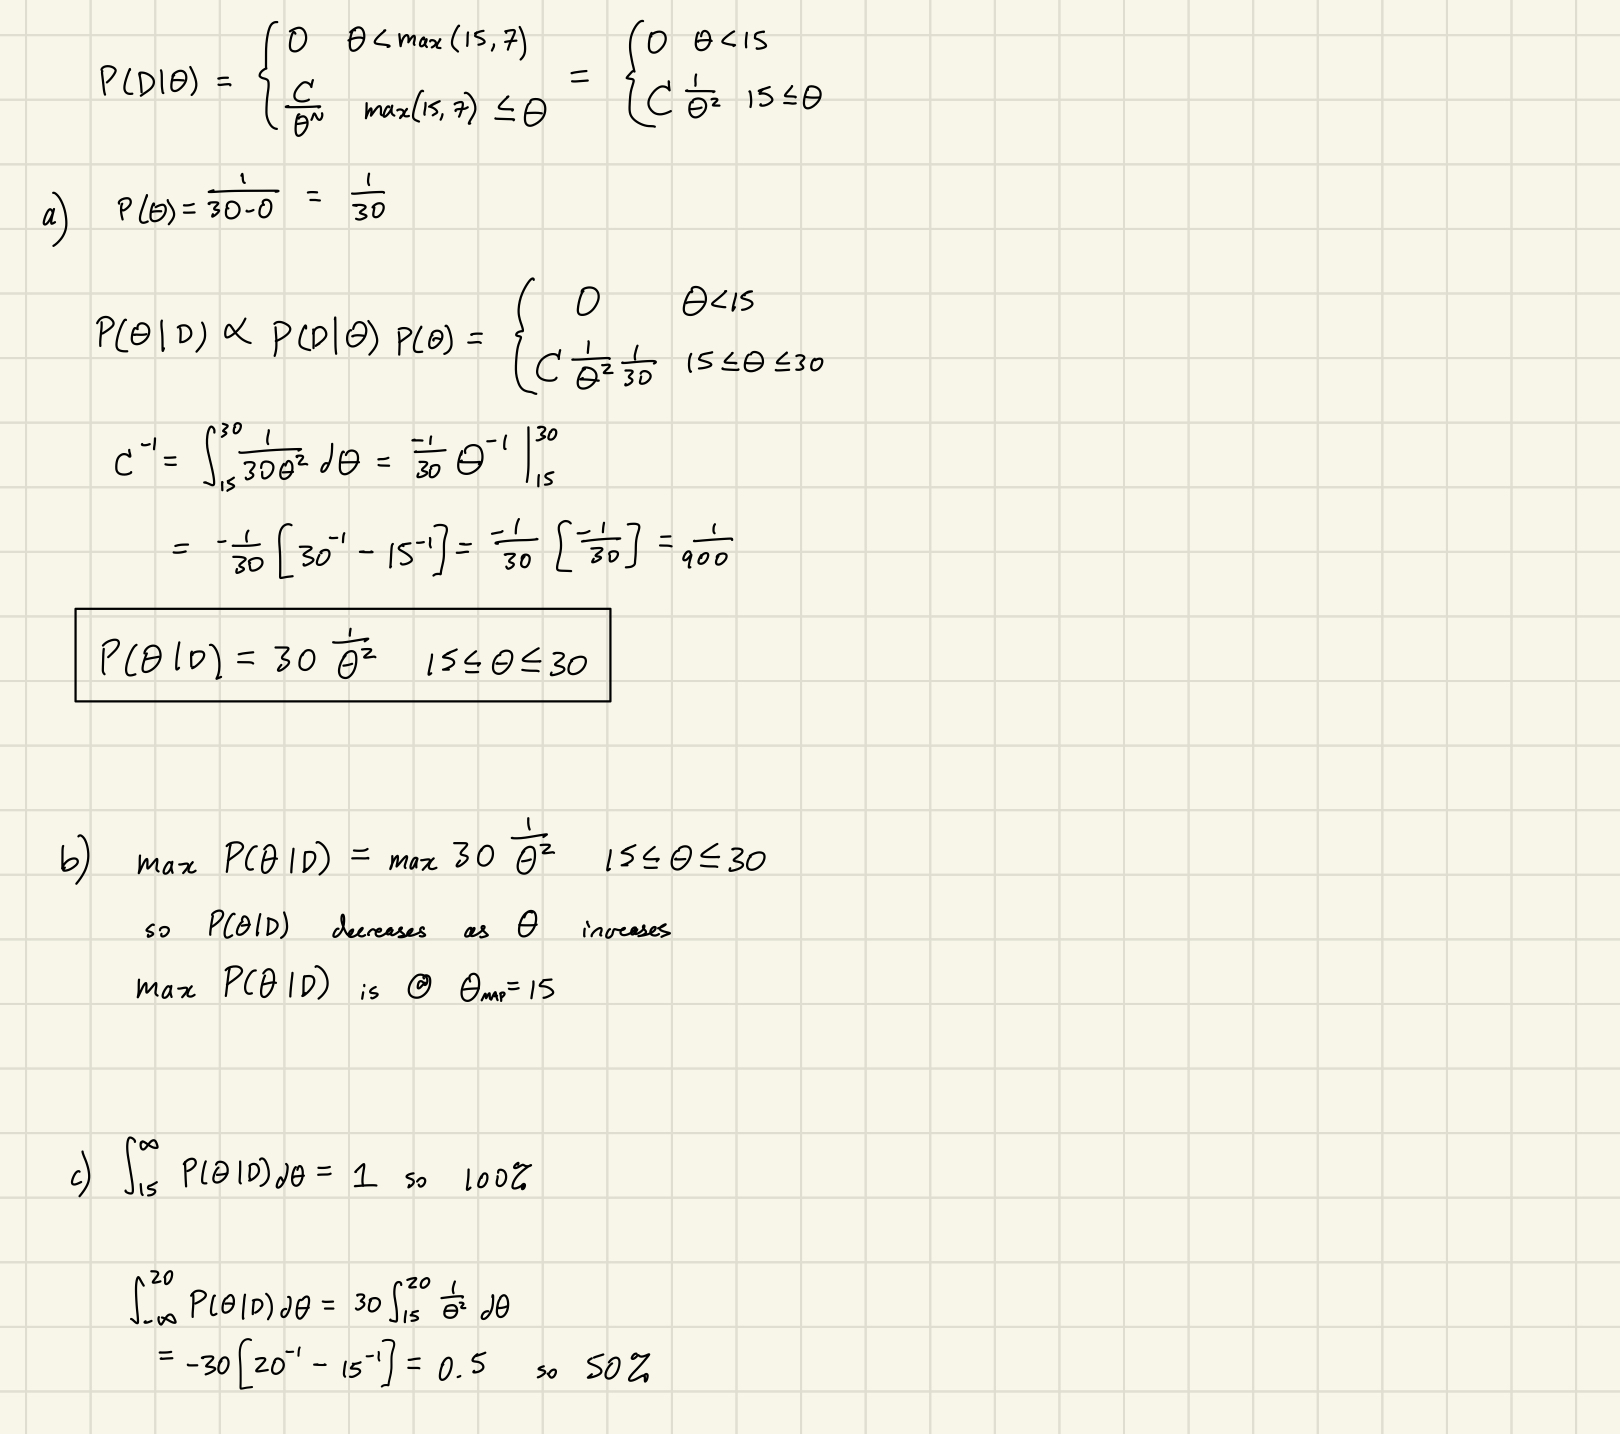 P(D|θ) = { 0 θ < max(15,7) ; C/θ^N max(15,7) ≤ θ = { 0 θ < 15 ; C 1/θ² 15 ≤ θ
a) P(θ) = 1/(30-0) = 1/30
P(θ|D) ∝ P(D|θ) P(θ) = { 0 θ < 15 ; C 1/θ² 1/30 15 ≤ θ ≤ 30
C⁻¹ = ∫₁₅³⁰ 1/(30θ²) dθ = -1/30 θ⁻¹ |₁₅³⁰
= -1/30 [30⁻¹ - 15⁻¹] = -1/30 [-1/30] = 1/900
P(θ|D) = 30 1/θ² 15 ≤ θ ≤ 30
b) max P(θ|D) = max 30 1/θ² 15 ≤ θ ≤ 30
so P(θ|D) decreases as θ increases
max P(θ|D) is @ θ_MAP = 15
c) ∫₁₅^∞ P(θ|D) dθ = 1 so 100%
∫₋∞²⁰ P(θ|D) dθ = 30 ∫₁₅²⁰ 1/θ² dθ
= -30 [20⁻¹ - 15⁻¹] = 0.5 so 50%